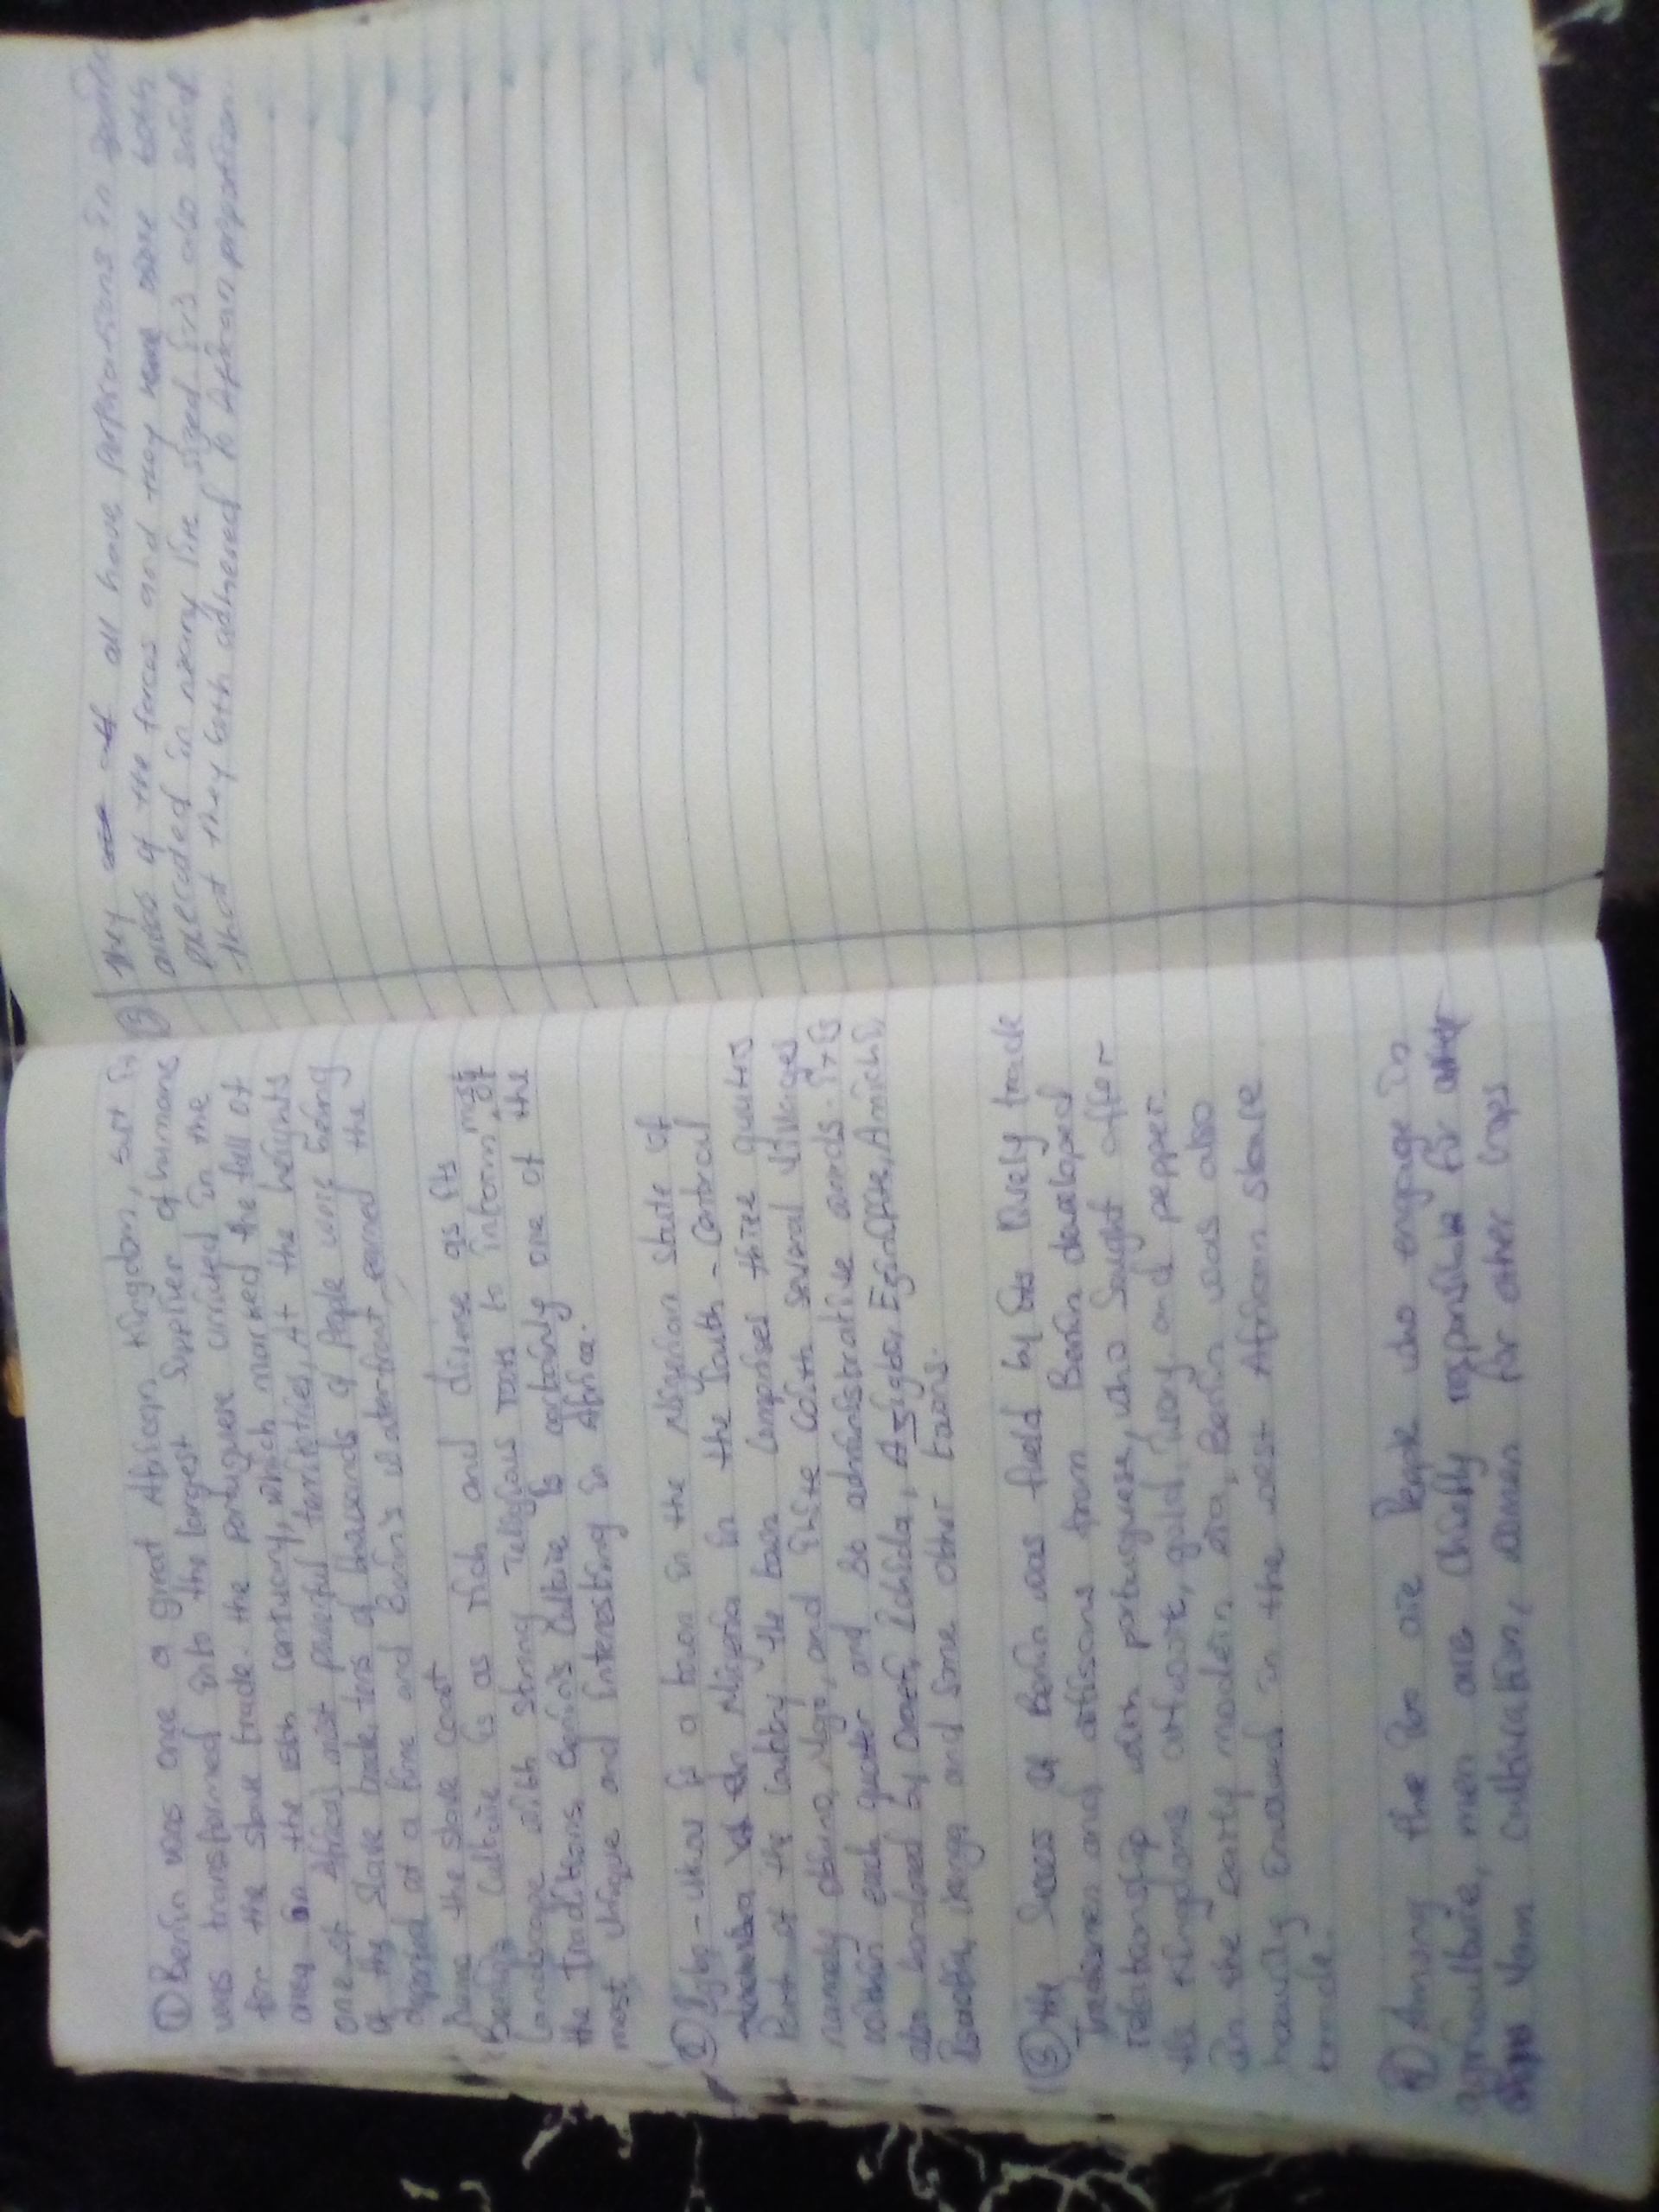 ① Benin was once a great African kingdom, but it
was transformed into the largest supplier of humans
for the slave trade. the portuguese arrived in the
area in the 15th century, which marked the fall of
one of Africa's most powerful territories, At the heights
of the slave trade, tens of thousands of People were being
deported at a time and Benin's waterfront earned the
name the slave coast
Benin's Culture is as rich and diverse as its
Landscape with strong religious roots to inform most of
the Traditions, Benin's Culture is certainly one of the
most unique and interesting in Africa.
② Igbo-Ukwu is a town in the Nigerian state of
Anambra in the Nigeria in the South-Central
Part of the Country the town comprises three quarters
namely Obiuno, Ngo, and Ihite with several villages
within each quarter and so administrative wards. it is
also bordered by Oraeri, Ichida, Azigbo, Ezinifite, Amichi,
Isuofia, Ikenga and some other towns.
③ the Sucess of Benin was fueld by its lively trade
Tradesmen and artisans from Benin developed
relationship with portuguese, who Sought after
the kingdoms artwork, gold, ivory and pepper.
in the early modern era, Benin was also
heavily envoved in the west African slave
trade.
④ Among the Ibo are People who engage in
agriculture, men are chiefly responsible for
Yam cultivation, women for other crops
⑤ They all have perforations in
areas of the faces and they were both
precreated in nearly life sized it's also said
that they both adhered to African proportion.